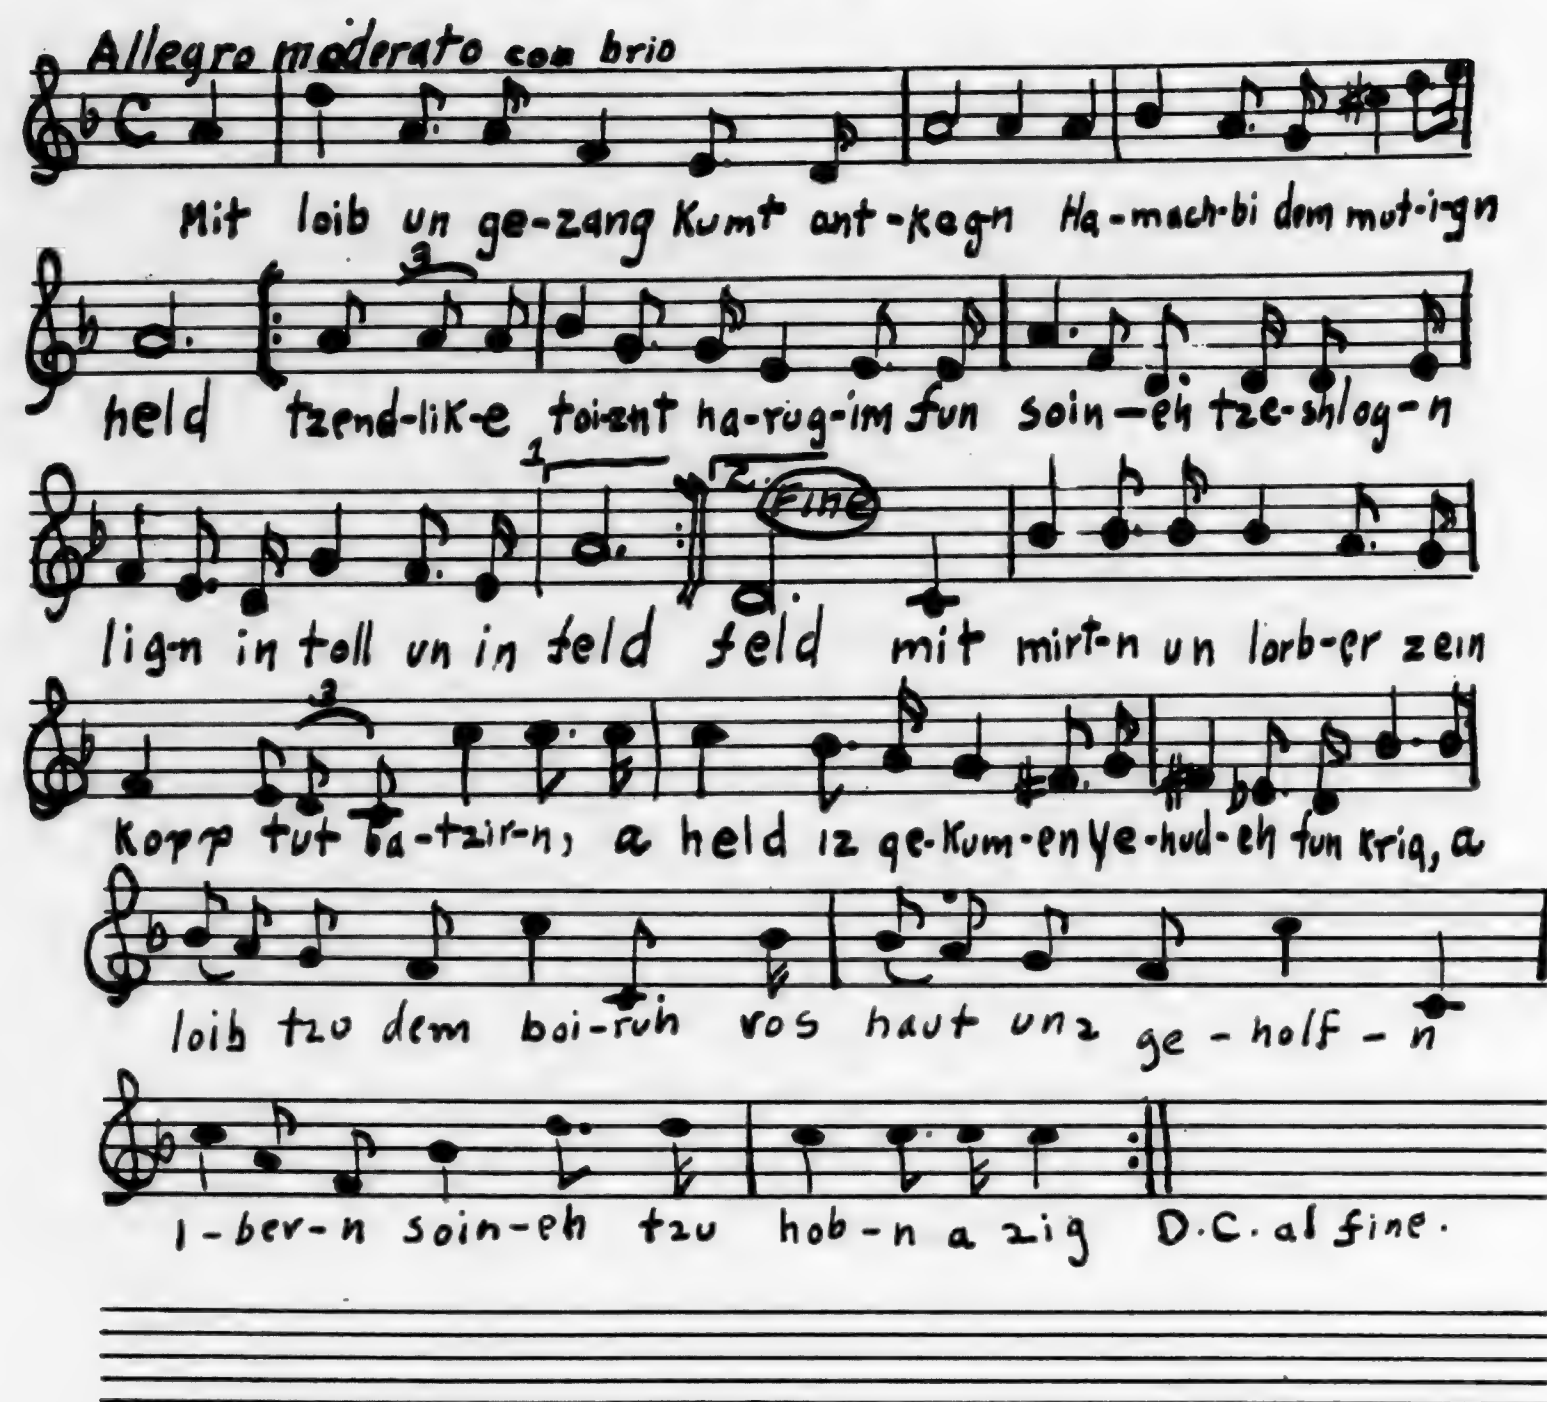 Allegro moderato con brio
Mit loib un ge-zang kumt ant-kegn Ha-mach-bi dem mut-i-gn
3
held tzend-lik-e toi-znt ha-rug-im fun soin-eh tze-shlog-n
1. 2. Fine
lig-n in toll un in feld feld mit mirt-n un lorb-er zein
3
kopp tut ba-tzir-n, a held iz ge-kum-en Ye-hud-eh fun krig, a
loib tzu dem boi-ruh vos haut unz ge-holf-n
i-ber-n soin-eh tzu hob-n a zig D.C. al fine.